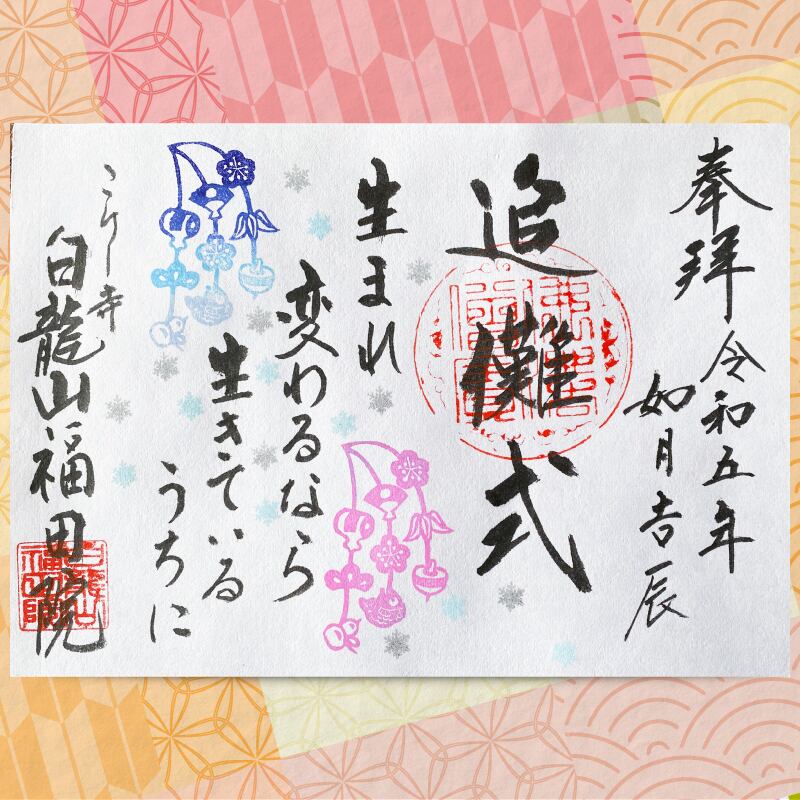 奉拝
令和五年
如月吉辰
追儺式
生まれ
変わるなら
生きている
うちに
こけし寺
白龍山福田院
白龍山
福田院